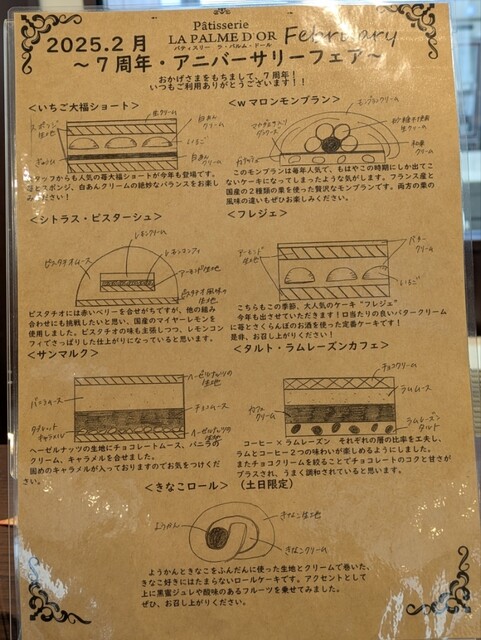 Pâtisserie
LA PALME D'OR
パティスリー ラ・パルム・ドール
February
2025.2月
～7周年・アニバーサリーフェア～
おかげさまをもちまして、7周年！
いつもご利用ありがとうございます！！
＜いちご大福ショート＞
スポンジ生地
生クリーム
白あんクリーム
いちご
ぎゅうひ
白あんクリーム
スタッフからも人気の苺大福ショートが今年も登場です。
苺とスポンジ、白あんクリームの絶妙なバランスをお楽し
みください！
＜wマロンモンブラン＞
モンブランクリーム
生クリーム
和栗クリーム
このモンブランは毎年人気で、もはやこの時期にしか出てこ
ないケーキになってしまったような気がします。フランス産と
国産の2種類の栗を使った贅沢なモンブランです。両方の栗の
風味の違いもぜひお楽しみください。
＜シトラス・ピスターシュ＞
レモンクリーム
レモンコンフィ
ピスタチオムース
アーモンド生地
ピスタチオ風味の生地
ピスタチオには赤いベリーを合せがちですが、他の組み
合わせにも挑戦したいと思い、国産のマイヤーレモンを
使用しました。ピスタチオの味も主張しつつ、レモンコン
フィでさっぱりした仕上がりになっていると思います。
＜フレジェ＞
アーモンド生地
バタークリーム
いちご
こちらもこの季節、大人気のケーキ“フレジェ”
今年も出させていただきます！口当たりの良いバタークリーム
に苺とさくらんぼのお酒を使った定番ケーキです！
是非、お召し上がりください！
＜サンマルク＞
ヘーゼルナッツの生地
バニラムース
チョコムース
キャラメル
ヘーゼルナッツの生地
ヘーゼルナッツの生地にチョコレートムース、バニラの
クリーム、キャラメルを合せました。
固めのキャラメルが入っておりますのでお気をつけくだ
さい。
＜タルト・ラムレーズンカフェ＞
チョコクリーム
ラムムース
カフェクリーム
ラムレーズンタルト
コーヒー×ラムレーズン それぞれの層の比率を工夫し、
ラムとコーヒー2つの味わいが楽しめるようにしました。
またチョコクリームを絞ることでチョコレートのコクと甘さが
プラスされ、うまく調和されていると思います。
＜きなこロール＞（土日限定）
ようかん
きなこ生地
きなこクリーム
ようかんときなこをふんだんに使った生地とクリームで巻いた、
きなこ好きにはたまらないロールケーキです。アクセントとして
上に黒蜜ジュレや酸味のあるフルーツを乗せてみました。
ぜひ、お召し上がりください。